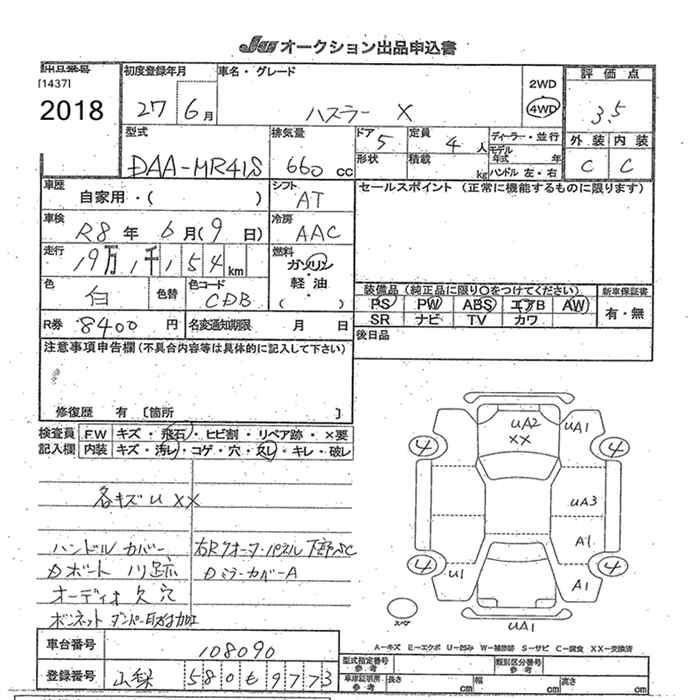 JU オークション出品申込書
出品番号 初度登録年月 車名・グレード 評価点
[1437]
2018 27 6月 ハスラー X 2WD 4WD 3.5
型式 排気量 ドア 定員 ディーラー・並行 外装 内装
DAA-MR41S 660cc 5 4人 モデル年式 年 C C
形状 積載 kg ハンドル 左・右
車歴 自家用・( ) シフト AT セールスポイント (正常に機能するものに限ります)
車検 R8年 6月(9日) 冷房 AAC
走行 19万1千154km 燃料 ガソリン・軽油 ( )
色 白 色替 色コード CDB
装備品 (純正品に限り○をつけてください) 新車保証書
PS PW ABS エアB AW 有・無
SR ナビ TV カワ
R券 8400円 名変通知期限 月 日 後日品
注意事項申告欄(不具合内容等は具体的に記入して下さい)
修復歴 有 〔箇所 〕
検査員 F.W キズ・飛石・ヒビ割・リペア跡・×要
記入欄 内装 キズ・汚レ・コゲ・穴・スレ・キレ・破レ
各キズ U XX
ハンドル カバー 右Rクオーターパネル 下部SC
ダボード 川跡 Dミラーカバー A
オーディオ 欠 穴
ボンネット ダンパー取付加工
UA2 XX UA1
4 4
UA3
A1
4 4
U1 A1
UA1
スペア
A−キズ E−エクボ U−凹み W−補修跡 S−サビ C−腐食 XX−交換済
車台番号 108090
登録番号 山梨 580 も 9773
型式指定番号 参考 類別区分番号 参考
車庫証明用 参考 長さ cm 幅 cm 高さ cm